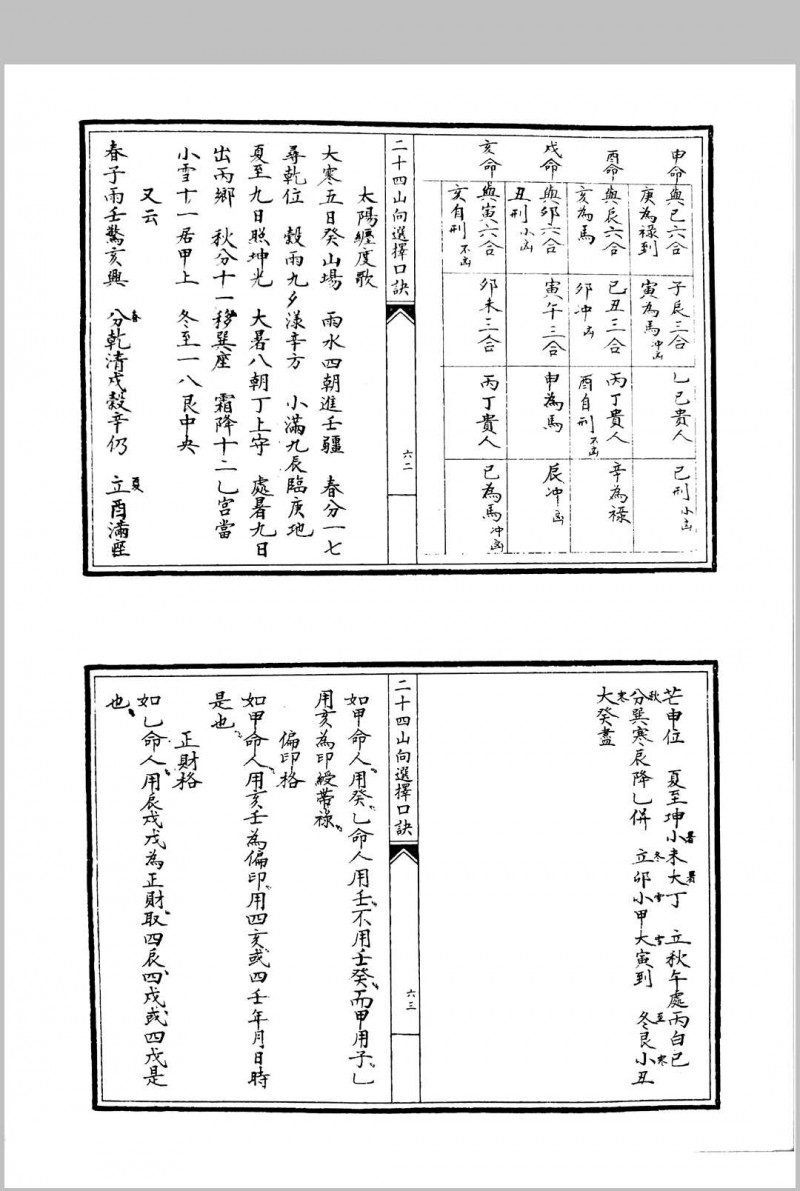 申命
與巳六合
庚為祿到
子辰三合
寅為馬冲凶
乙巳貴人
巳刑小凶
酉命
與辰六合
亥為馬
巳丑三合
卯冲凶
丙丁貴人
酉自刑不凶
辛為祿
戌命
與卯六合
丑刑小凶
寅午三合
申為馬
辰冲凶
亥命
與寅六合
亥自刑不凶
卯未三合
丙丁貴人
巳為馬冲凶
二十四山向選擇口訣
六二
太陽纏度歌
大寒五日癸山場 雨水四朝進壬疆 春分一七
尋乾位 穀雨九夕漾辛方 小滿九辰臨庚地
夏至九日照坤光 大暑八朝丁上守 處暑九日
出丙鄉 秋分十一移巽座 霜降十二乙宮當
小雪十一居甲上 冬至一八艮中央
又云
春子雨壬驚亥興 春分乾清戌穀辛仍 夏立酉滿座
芒申位 夏至坤小暑未大暑丁 立秋午處丙白巳
秋分巽寒辰降乙併 立冬卯小雪甲大雪寅到 冬至艮小寒丑
大寒癸盡
二十四山向選擇口訣
六三
如甲命人、用癸、乙命人用壬、不用壬癸、而甲用子、乙
用亥為印綬帶祿、
偏印格
如甲命人、用亥壬為偏印、用四亥或四壬年月日時
是也、
正財格
如乙命人、用辰戌戊為正財、取四辰、四戌、或四戊是
也、